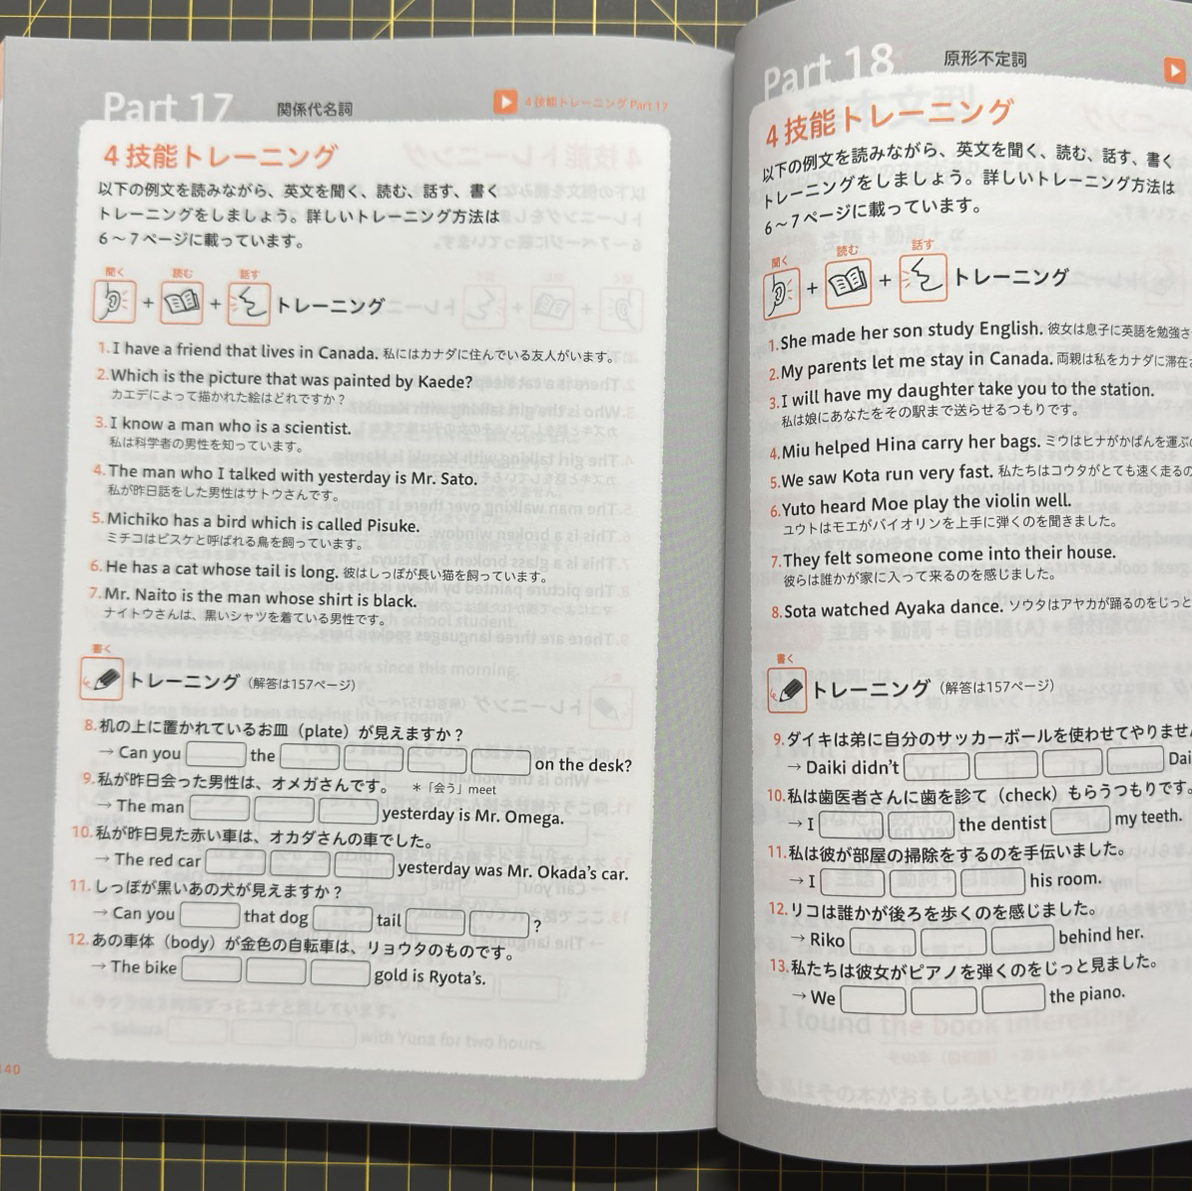 Part 17 関係代名詞
4技能トレーニング Part 17
4技能トレーニング
以下の例文を読みながら、英文を聞く、読む、話す、書く
トレーニングをしましょう。詳しいトレーニング方法は
6～7ページに載っています。
聞く 読む 話す
+ + トレーニング
1. I have a friend that lives in Canada. 私にはカナダに住んでいる友人がいます。
2. Which is the picture that was painted by Kaede?
カエデによって描かれた絵はどれですか？
3. I know a man who is a scientist.
私は科学者の男性を知っています。
4. The man who I talked with yesterday is Mr. Sato.
私が昨日話をした男性はサトウさんです。
5. Michiko has a bird which is called Pisuke.
ミチコはピスケと呼ばれる鳥を飼っています。
6. He has a cat whose tail is long. 彼はしっぽが長い猫を飼っています。
7. Mr. Naito is the man whose shirt is black.
ナイトウさんは、黒いシャツを着ている男性です。
書く
トレーニング（解答は157ページ）
8. 机の上に置かれているお皿（plate）が見えますか？
→ Can you the on the desk?
9. 私が昨日会った男性は、オメガさんです。 ＊「会う」meet
→ The man yesterday is Mr. Omega.
10. 私が昨日見た赤い車は、オカダさんの車でした。
→ The red car yesterday was Mr. Okada's car.
11. しっぽが黒いあの犬が見えますか？
→ Can you that dog tail ?
12. あの車体（body）が金色の自転車は、リョウタのものです。
→ The bike gold is Ryota's.
140
Part 18 原形不定詞
4技能トレーニング
以下の例文を読みながら、英文を聞く、読む、話す、書く
トレーニングをしましょう。詳しいトレーニング方法は
6～7ページに載っています。
聞く 読む 話す
+ + トレーニング
1. She made her son study English. 彼女は息子に英語を勉強さ
2. My parents let me stay in Canada. 両親は私をカナダに滞在
3. I will have my daughter take you to the station.
私は娘にあなたをその駅まで送らせるつもりです。
4. Miu helped Hina carry her bags. ミウはヒナがかばんを運ぶ
5. We saw Kota run very fast. 私たちはコウタがとても速く走るの
6. Yuto heard Moe play the violin well.
ユウトはモエがバイオリンを上手に弾くのを聞きました。
7. They felt someone come into their house.
彼らは誰かが家に入って来るのを感じました。
8. Sota watched Ayaka dance. ソウタはアヤカが踊るのをじっと
書く
トレーニング（解答は157ページ）
9. ダイキは弟に自分のサッカーボールを使わせてやりませ
→ Daiki didn't Dai
10. 私は歯医者さんに歯を診て（check）もらうつもりです。
→ I the dentist my teeth.
11. 私は彼が部屋の掃除をするのを手伝いました。
→ I his room.
12. リコは誰かが後ろを歩くのを感じました。
→ Riko behind her.
13. 私たちは彼女がピアノを弾くのをじっと見ました。
→ We the piano.